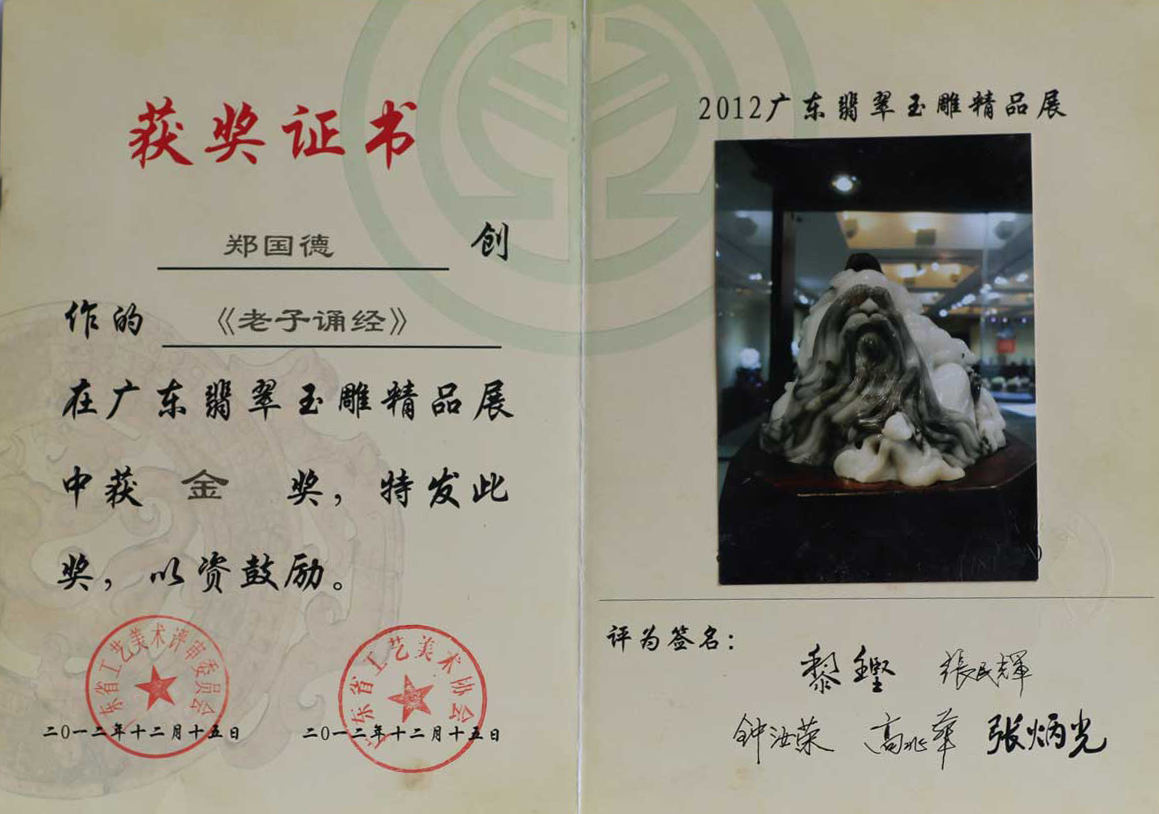 获奖证书
郑国德 创
作的 《老子诵经》
在广东翡翠玉雕精品展
中获 金 奖，特发此
奖，以资鼓励。
广东省工艺美术评审委员会
二〇一二年十二月十五日
广东省工艺美术协会
二〇一二年十二月十五日
2012广东翡翠玉雕精品展
评为签名：
黎铿 張民輝
钟汝荣 高兆华 张炳光